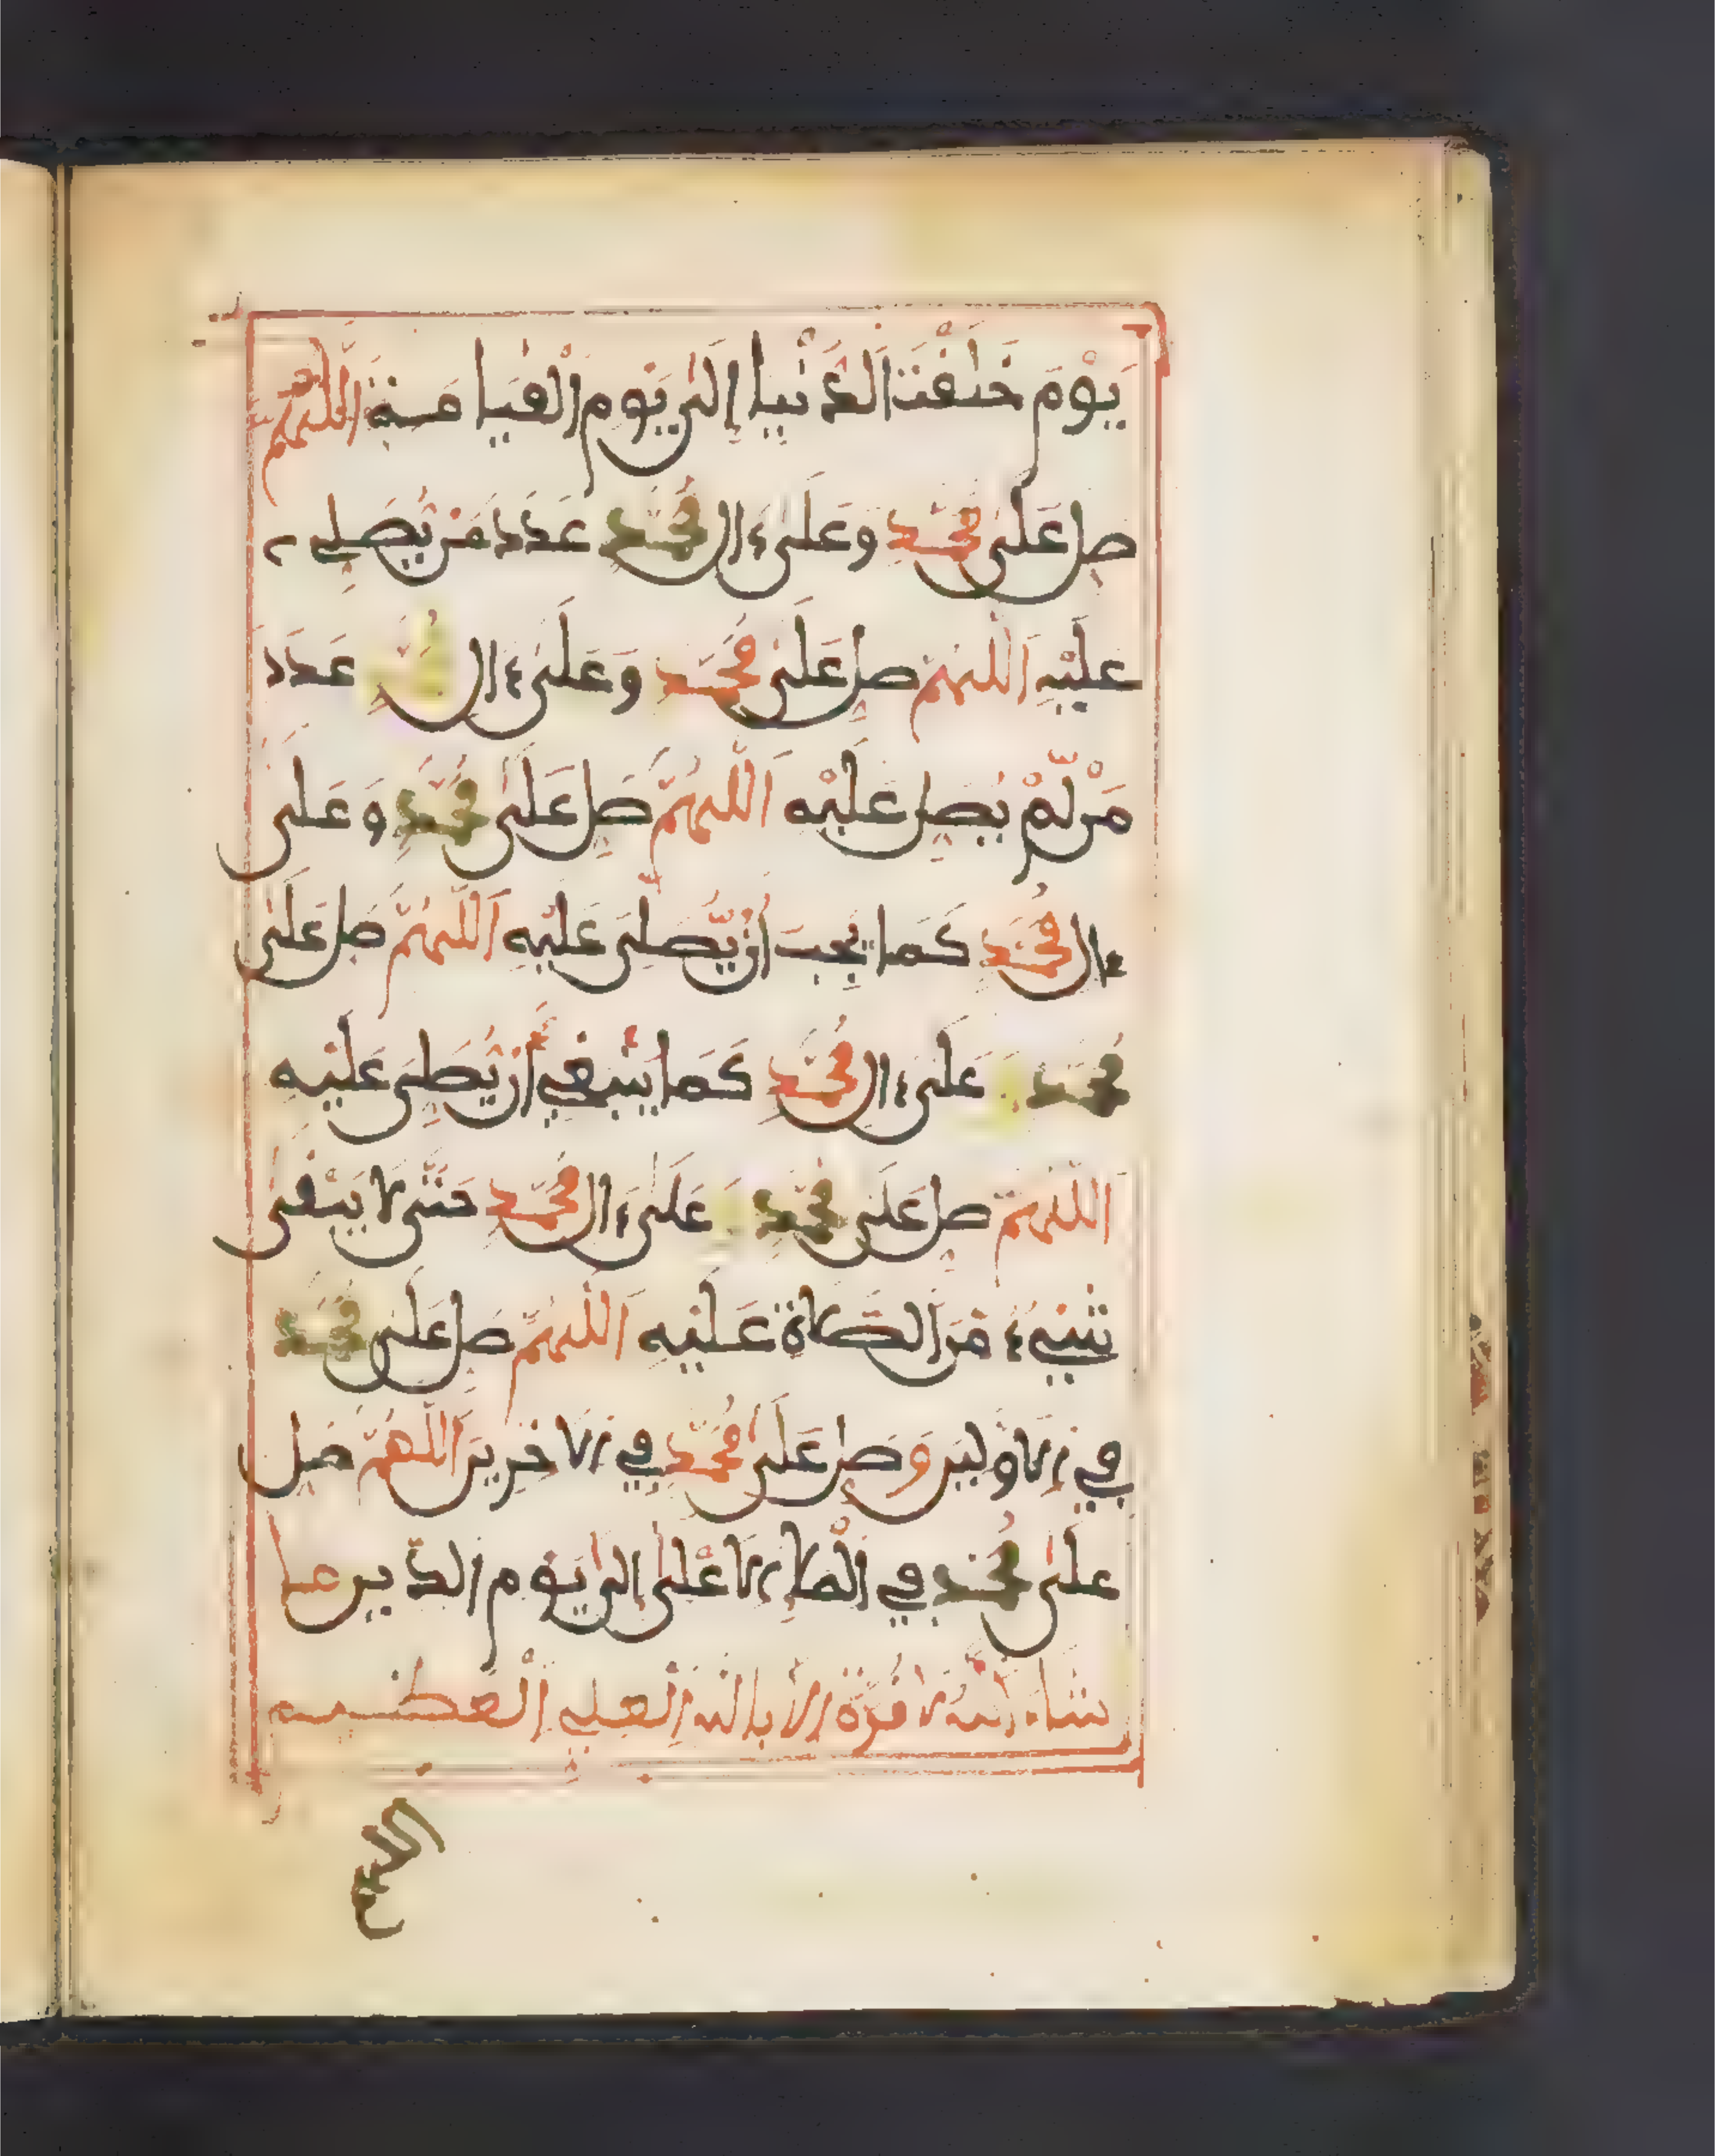 يَوْمَ خَلَقْتَ الدُّنْيا إِلَىٰ يَوْمِ الْقِيَامَةِ اللَّهُمَّ
صَلِّ عَلَىٰ مُحَمَّدٍ وَعَلَىٰ ءَالِ مُحَمَّدٍ عَدَدَ مَنْ يُصَلِّي
عَلَيْهِ اَللَّهُمَّ صَلِّ عَلَىٰ مُحَمَّدٍ وَعَلَىٰ ءَالِ مُحَمَّدٍ عَدَدَ
مَن لَّمْ يُصَلِّ عَلَيْهِ اَللَّهُمَّ صَلِّ عَلَىٰ مُحَمَّدٍ وَعَلَىٰ
ءَالِ مُحَمَّدٍ كَمَا يَجِبُ أَن يُّصَلَّىٰ عَلَيْهِ اَللَّهُمَّ صَلِّ عَلَىٰ
مُحَمَّدٍ وَعَلَىٰ ءَالِ مُحَمَّدٍ كَمَا يَنْبَغِي أَنْ يُّصَلَّىٰ عَلَيْهِ
اَللَّهُمَّ صَلِّ عَلَىٰ مُحَمَّدٍ وَعَلَىٰ ءَالِ مُحَمَّدٍ حَتَّىٰ لَا يَبْقَىٰ
شَيْءٌ مِّنَ الصَّلَاةِ عَلَيْهِ اَللَّهُمَّ صَلِّ عَلَىٰ مُحَمَّدٍ
فِي الْأَوَّلِينَ وَصَلِّ عَلَىٰ مُحَمَّدٍ فِي الْأَخِرِينَ اَللَّهُمَّ صَلِّ
عَلَىٰ مُحَمَّدٍ فِي الْمَلَإِ الْأَعْلَىٰ إِلَىٰ يَوْمِ الدِّينِ مَا
شَاءَ اللَّهُ لَا قُوَّةَ إِلَّا بِاللَّهِ الْعَلِيِّ الْعَظِيمِ
اللهم